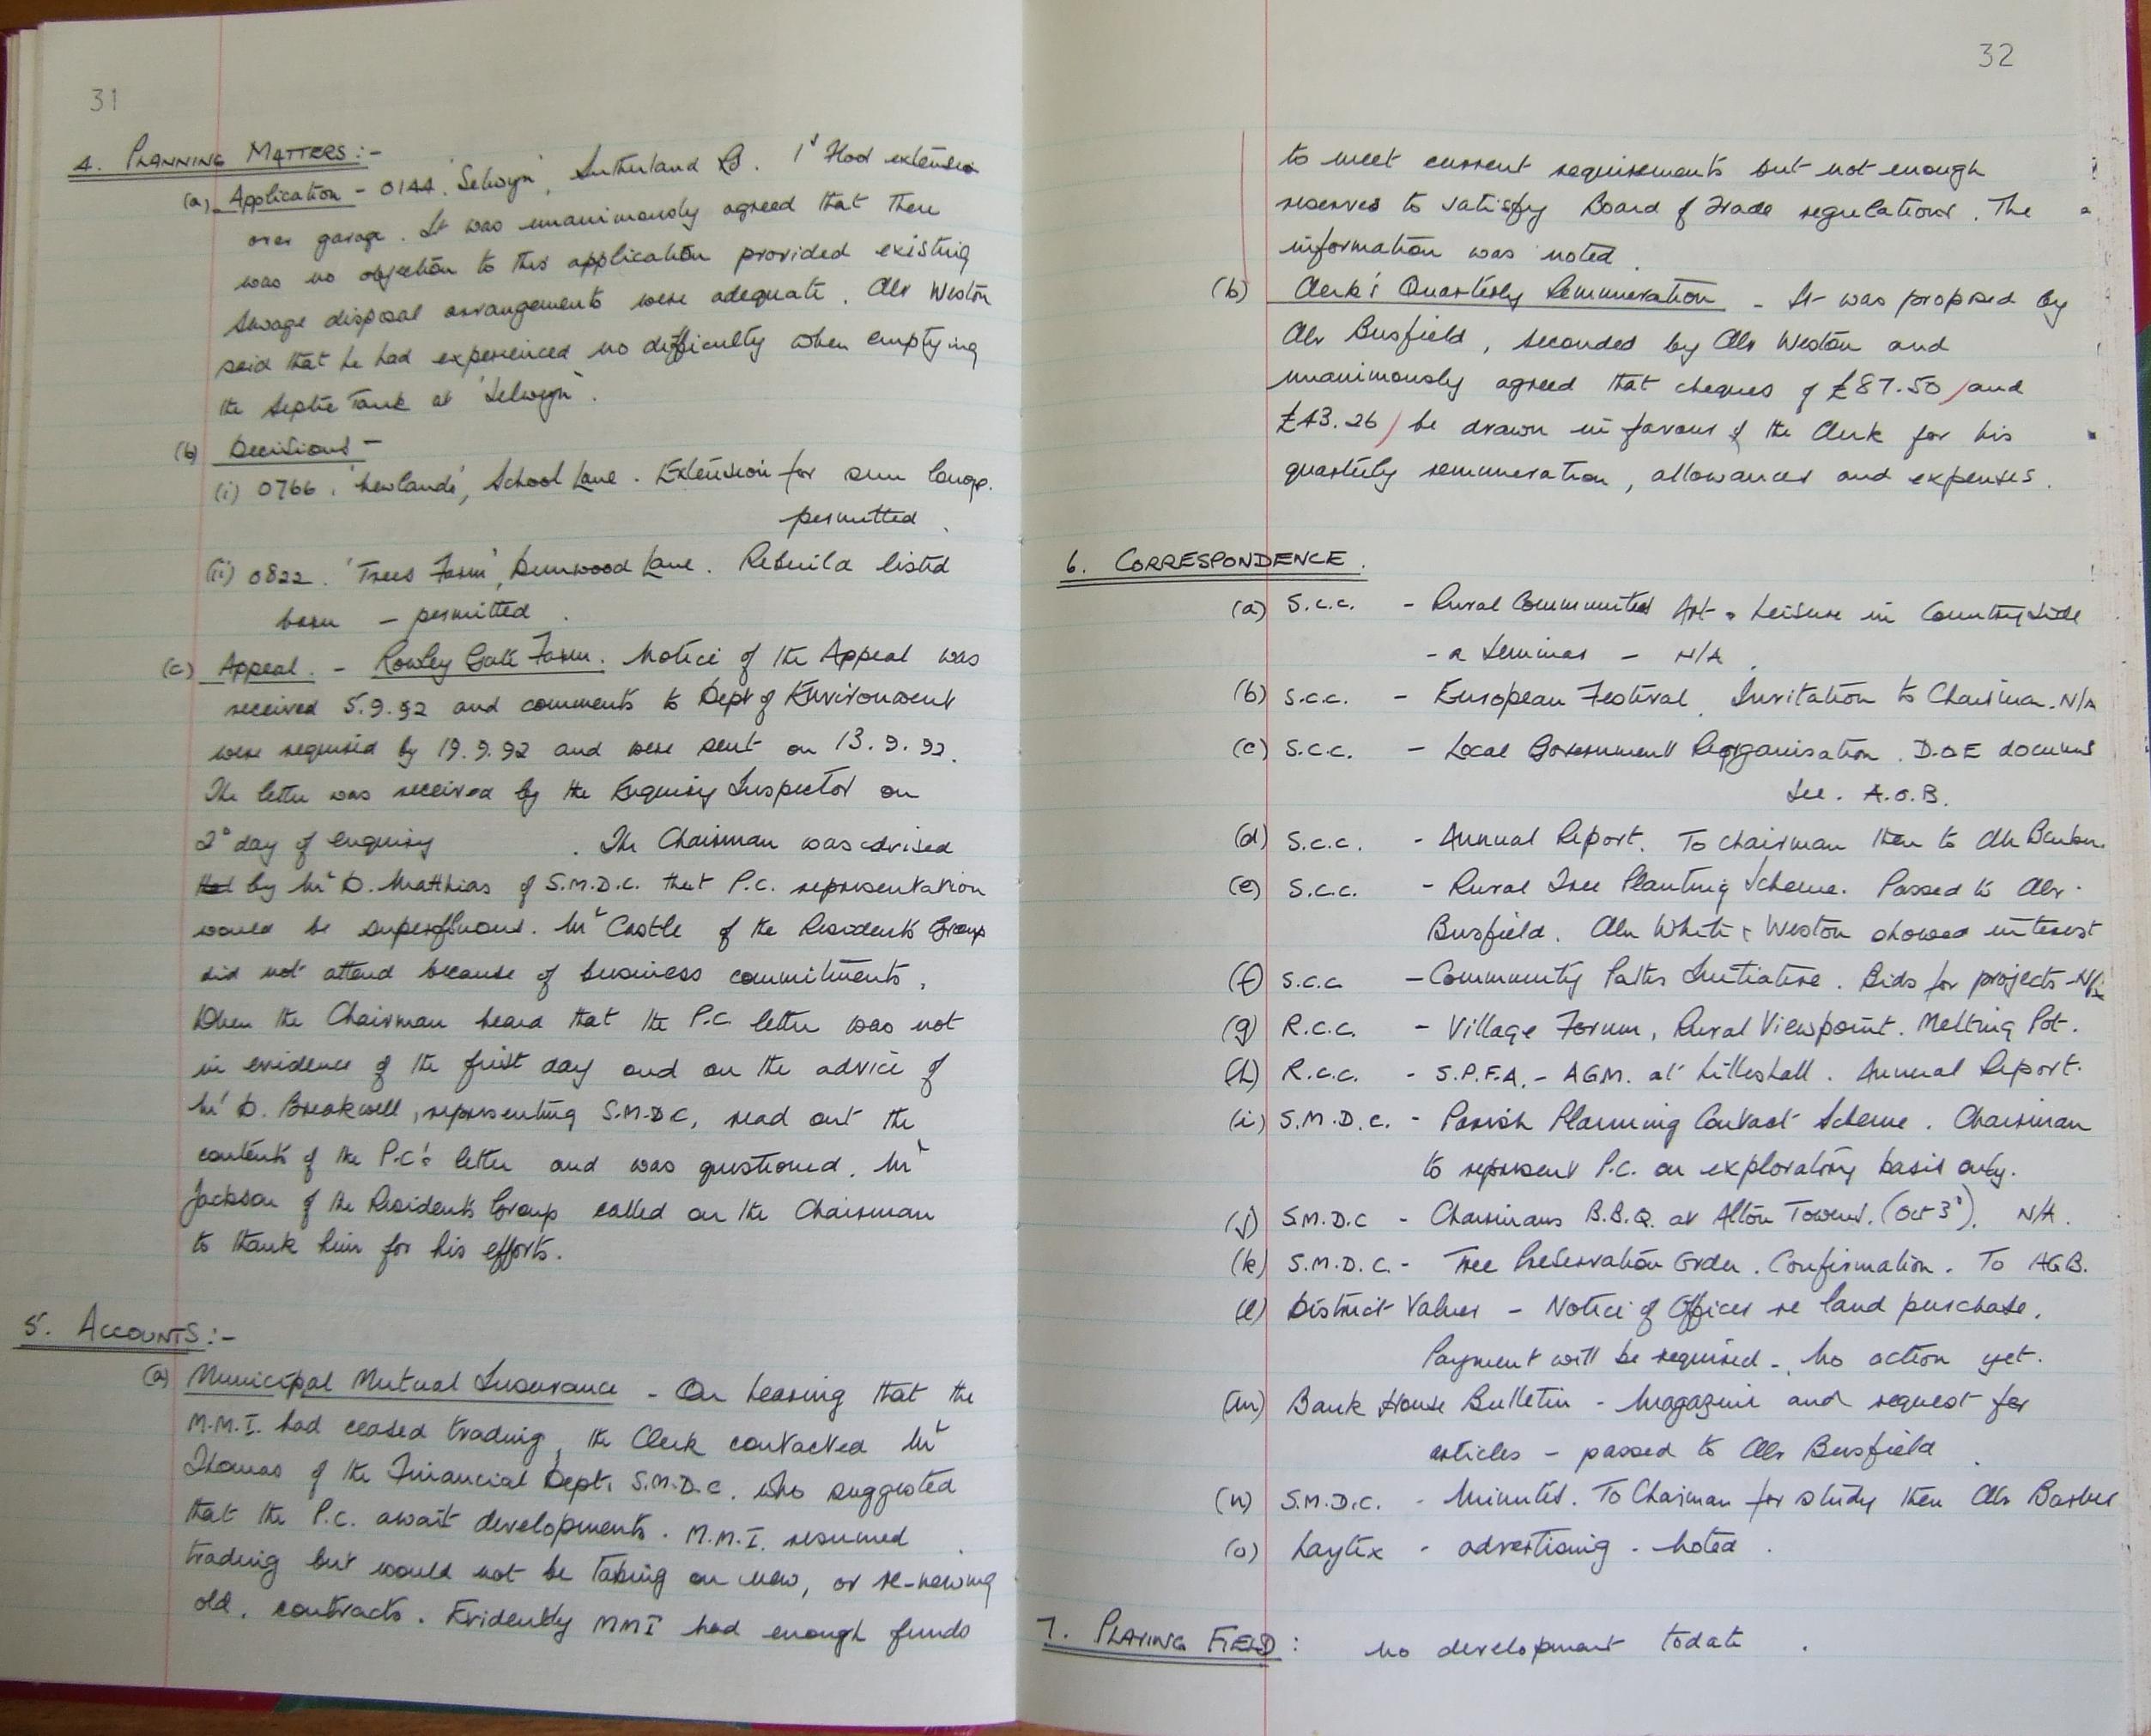 31
4. PLANNING MATTERS:-
(a) Application - 0144 'Selwyn', Sutherland Rd. 1st Floor extension
over garage. It was unanimously agreed that there
was no objection to this application provided existing
sewage disposal arrangements were adequate. Cllr Weston
said that he had experienced no difficulty when emptying
the Septic Tank at 'Selwyn'.
(b) Decisions -
(i) 0766. 'Newlands', School Lane. Extension for sun lounge.
permitted.
(ii) 0822. 'Trees Farm', Dunwood Lane. Rebuild listed
barn - permitted.
(c) Appeal. - Rowley Gate Farm. Notice of the Appeal was
received 5.9.92 and comments to Dept of Environment
were required by 19.9.92 and were sent on 13.9.92.
The letter was received by the Enquiry Inspector on
2d day of enquiry . The Chairman was advised
that by Mr D. Matthias of S.M.D.C. that P.C. representation
would be superfluous. Mr Castle of the Residents Group
did not attend because of business commitments.
When the Chairman heard that the P.C. letter was not
in evidence of the first day and on the advice of
Mr D. Breakwell, representing S.M.D.C, read out the
contents of the P.C's letter and was questioned. Mr
Jackson of the Residents Group called on the Chairman
to thank him for his efforts.
5. ACCOUNTS:-
(a) Municipal Mutual Insurance - On hearing that the
M.M.I. had ceased trading, the Clerk contacted Mr
Thomas of the Financial Dept. S.M.D.C. who suggested
that the P.C. await developments. M.M.I. resumed
trading but would not be taking on new, or re-newing
old, contracts. Evidently MMI had enough funds
32
to meet current requirements but not enough
reserves to satisfy Board of Trade regulations. The
information was noted.
(b) Clerk's Quarterly Remuneration - It was proposed by
Cllr Busfield, seconded by Cllr Weston and
unanimously agreed that cheques of £87.50/and
£43.26/ be drawn in favour of the Clerk for his
quarterly remuneration, allowances and expenses.
6. CORRESPONDENCE.
(a) S.C.C. - Rural Communities Art & Leisure in Countryside
- a Seminar - N/A.
(b) S.C.C. - European Festival. Invitation to Chairman. N/A
(c) S.C.C. - Local Government Reorganisation. D.O.E documents
See. A.O.B.
(d) S.C.C. - Annual Report. To Chairman then to Cllr Barber.
(e) S.C.C. - Rural Tree Planting Scheme. Passed to Cllr.
Busfield. Cllr White & Weston showed interest
(f) S.C.C - Community Paths Initiative. Bids for projects - N/A
(g) R.C.C. - Village Forum, Rural Viewpoint. Melting Pot.
(h) R.C.C. - S.P.F.A. - AGM. at Lilleshall. Annual Report.
(i) S.M.D.C. - Parish Planning Contact Scheme. Chairman
to represent P.C. on exploratory basis only.
(j) S.M.D.C - Chairmans B.B.Q. at Alton Towers. (Oct 3d). N/A.
(k) S.M.D.C. - Tree Preservation Order. Confirmation. To AGB.
(l) District Valuer - Notice of Offices re land purchase.
Payment will be required - No action yet.
(m) Bank House Bulletin - Magazine and request for
articles - passed to Cllr Busfield.
(n) S.M.D.C. - Minutes. To Chairman for study then Cllr Barber
(o) Laytex - advertising - Noted.
7. PLAYING FIELD: No development todate.